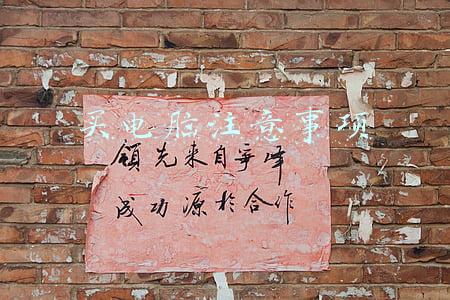 买电脑注意事项
领先来自争峰
成功源於合作